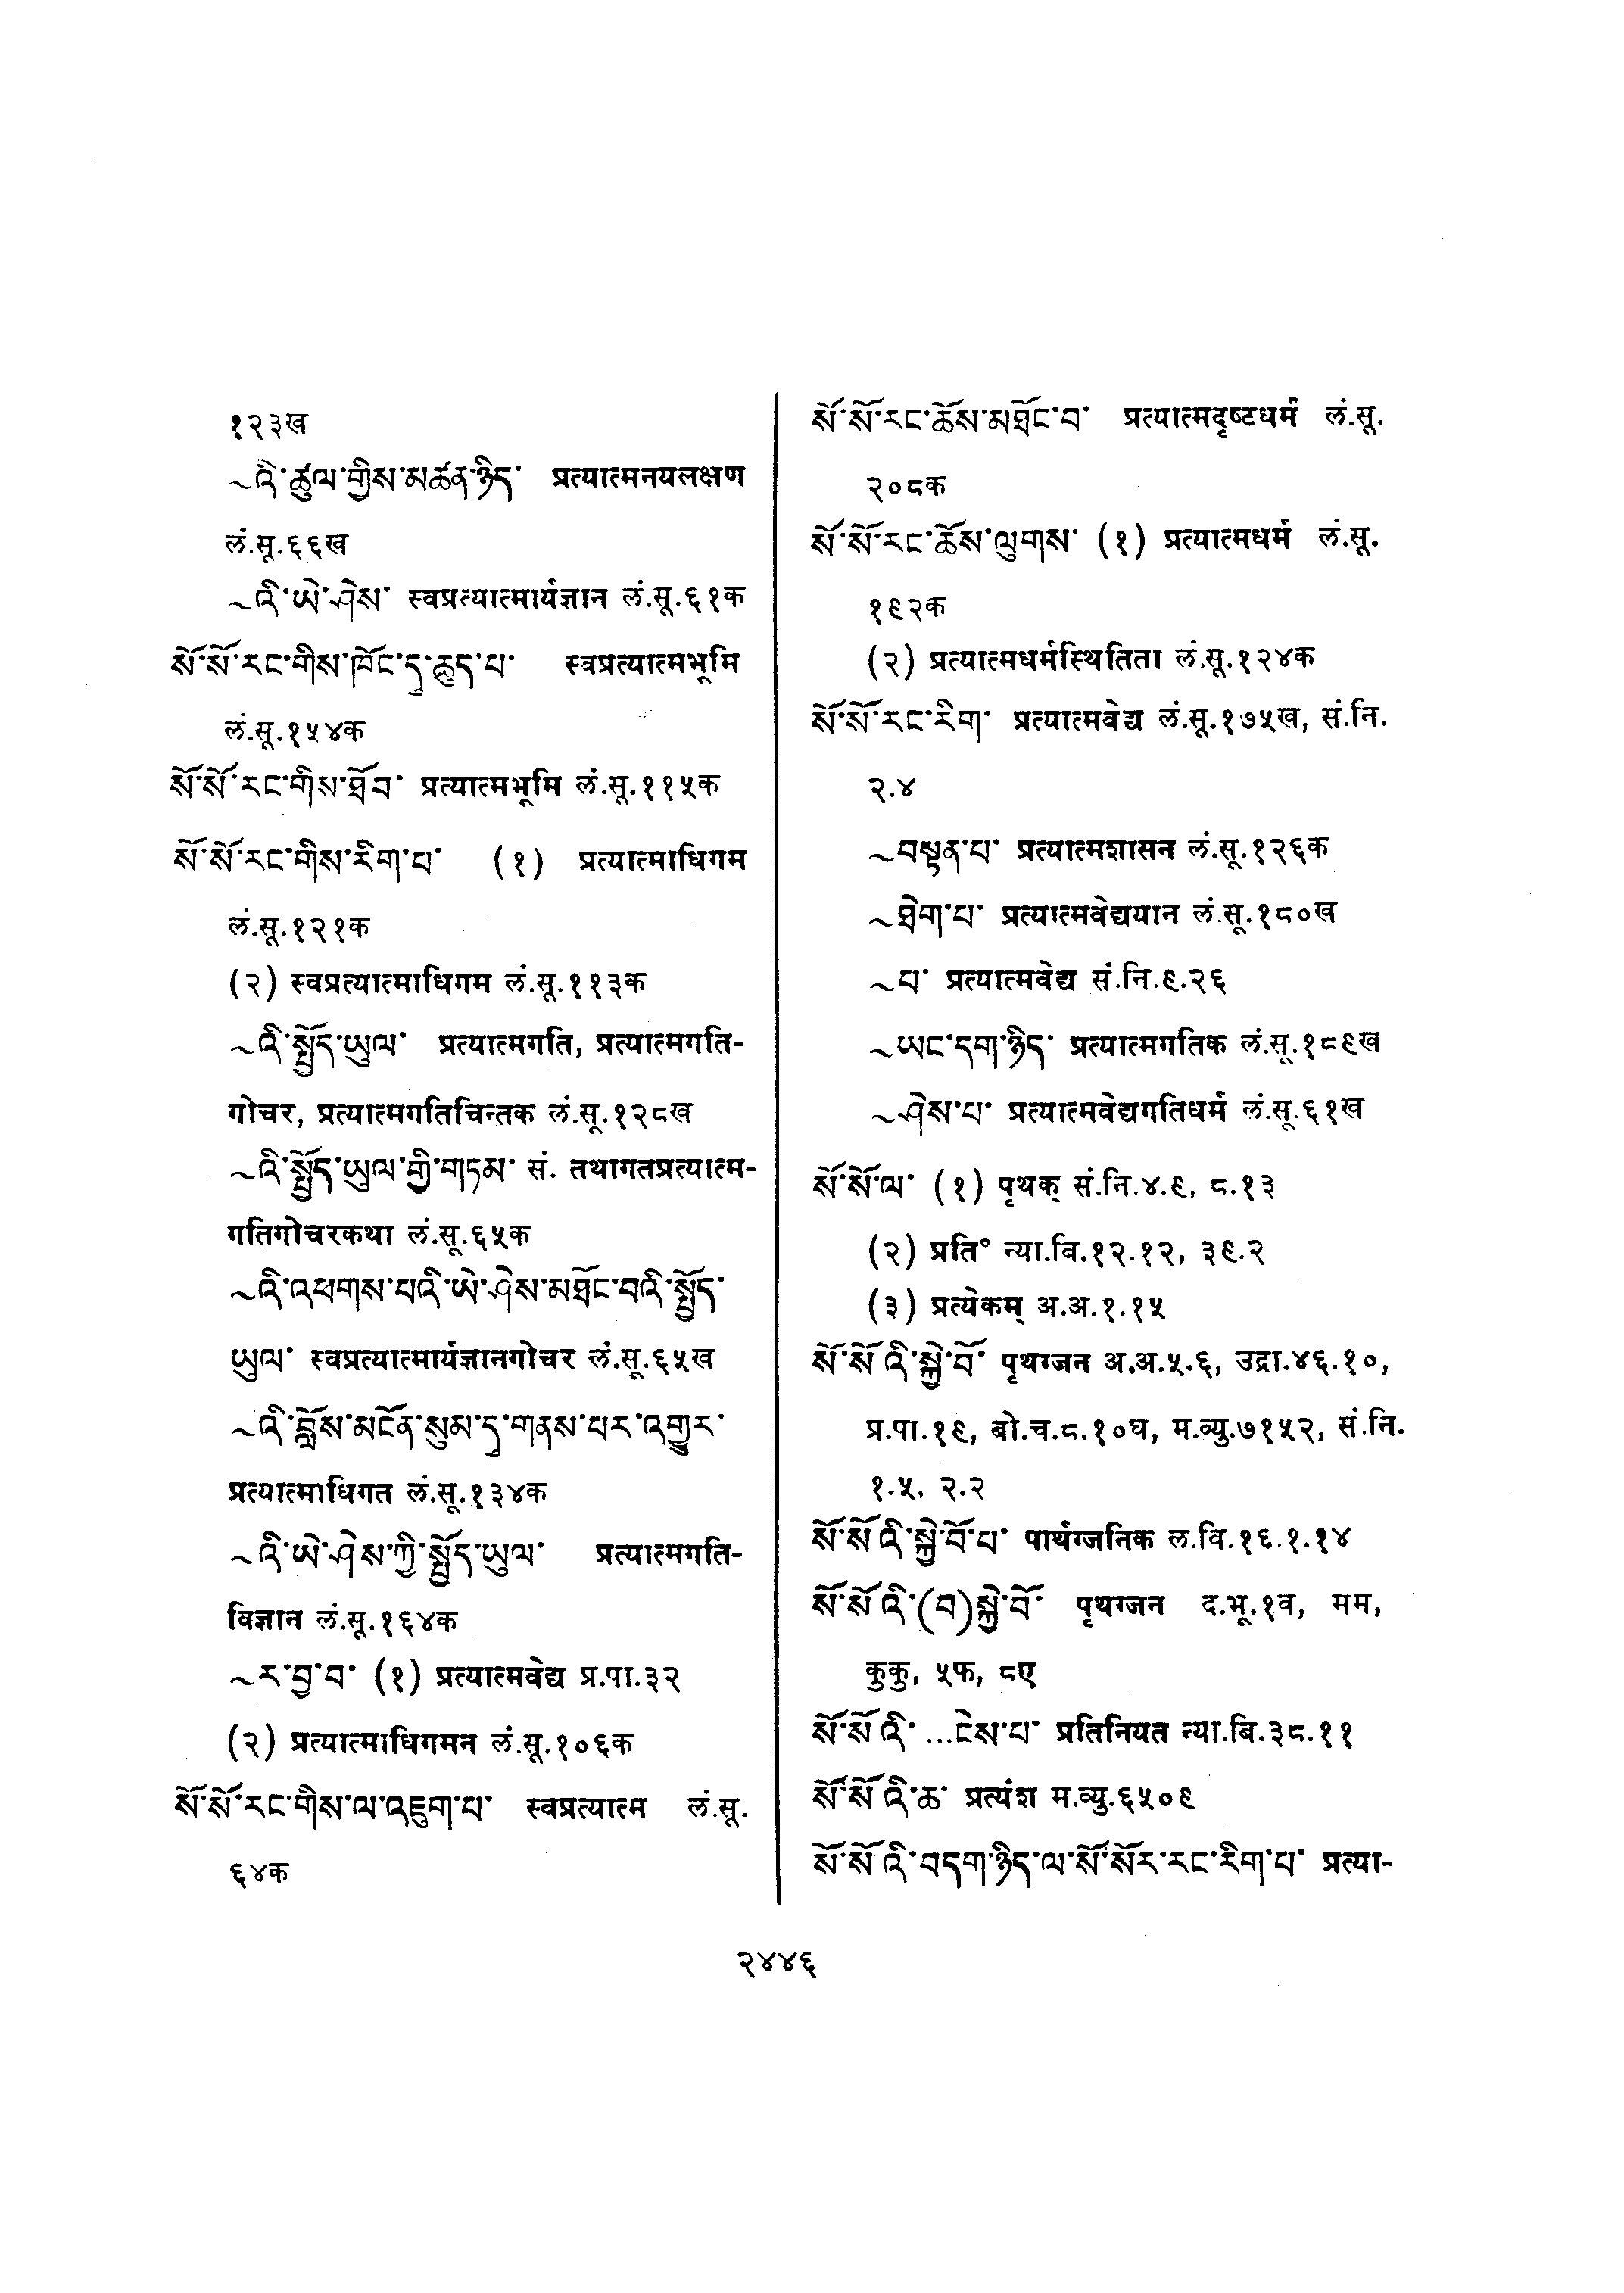 १२३ख
~འི་ཚུལ་གྱིས་མཚན་ཉིད་ प्रत्यात्मनयलक्षण
लं.सू.६६ख
~འི་ཡེ་ཤེས་ स्वप्रत्यात्मार्यज्ञान लं.सू.६१क
སོ་སོ་རང་གིས་ཁོང་དུ་ཆུད་པ་ स्वप्रत्यात्मभूमि
लं.सू.१५४क
སོ་སོ་རང་གིས་ཐོབ་ प्रत्यात्मभूमि लं.सू.११५क
སོ་སོ་རང་གིས་རིག་པ་ (१) प्रत्यात्माधिगम
लं.सू.१२१क
(२) स्वप्रत्यात्माधिगम लं.सू.११३क
~འི་སྤྱོད་ཡུལ་ प्रत्यात्मगति, प्रत्यात्मगति-
गोचर, प्रत्यात्मगतिचिन्तक लं.सू.१२८ख
~འི་སྤྱོད་ཡུལ་གྱི་གཏམ་ सं. तथागतप्रत्यात्म-
गतिगोचरकथा लं.सू.६५क
~འི་འཕགས་པའི་ཡེ་ཤེས་མཐོང་བའི་སྤྱོད་
ཡུལ་ स्वप्रत्यात्मार्यज्ञानगोचर लं.सू.६५ख
~འི་བློས་མངོན་སུམ་དུ་གནས་པར་འགྱུར་
प्रत्यात्माधिगत लं.सू.१३४क
~འི་ཡེ་ཤེས་ཀྱི་སྤྱོད་ཡུལ་ प्रत्यात्मगति-
विज्ञान लं.सू.१६४क
~ར་བྱ་བ་ (१) प्रत्यात्मवेद्य प्र.पा.३२
(२) प्रत्यात्माधिगमन लं.सू.१०६क
སོ་སོ་རང་གིས་ལ་འཇུག་པ་ स्वप्रत्यात्म लं.सू.
६४क
སོ་སོ་རང་ཆོས་མཐོང་བ་ प्रत्यात्मदृष्टधर्म लं.सू.
२०८क
སོ་སོ་རང་ཆོས་ལུགས་ (१) प्रत्यात्मधर्म लं.सू.
१९२क
(२) प्रत्यात्मधर्मस्थितिता लं.सू.१२४क
སོ་སོ་རང་རིག་ प्रत्यात्मवेद्य लं.सू.१७५ख, सं.नि.
२.४
~བསྟན་པ་ प्रत्यात्मशासन लं.सू.१२६क
~ཐེག་པ་ प्रत्यात्मवेद्ययान लं.सू.१८०ख
~པ་ प्रत्यात्मवेद्य सं.नि.९.२६
~ཡང་དག་ཉིད་ प्रत्यात्मगतिक लं.सू.१८९ख
~ཤེས་པ་ प्रत्यात्मवेद्यगतिधर्म लं.सू.६१ख
སོ་སོ་ལ་ (१) पृथक् सं.नि.४.९, ८.१३
(२) प्रति॰ न्या.वि.१२.१२, ३९.२
(३) प्रत्येकम् अ.अ.१.१५
སོ་སོ་འི་སྐྱེ་བོ་ पृथग्जन अ.अ.५.६, उद्रा.४६.१०,
प्र.पा.१९, बो.च.८.१०घ, म.व्यु.७१५२, सं.नि.
१.५, २.२
སོ་སོ་འི་སྐྱེ་བོ་པ་ पार्थग्जनिक ल.वि.१६.१.१४
སོ་སོ་འི་(བ)སྐྱེ་བོ་ पृथग्जन द.भू.१व, मम,
कुकु, ५फ, ८ए
སོ་སོ་འི་ ...ངེས་པ་ प्रतिनियत न्या.बि.३८.११
སོ་སོ་འི་ཆ་ प्रत्यंश म.व्यु.६५०९
སོ་སོ་འི་བདག་ཉིད་ལ་སོ་སོར་རང་རིག་པ་ प्रत्या-
२४४६